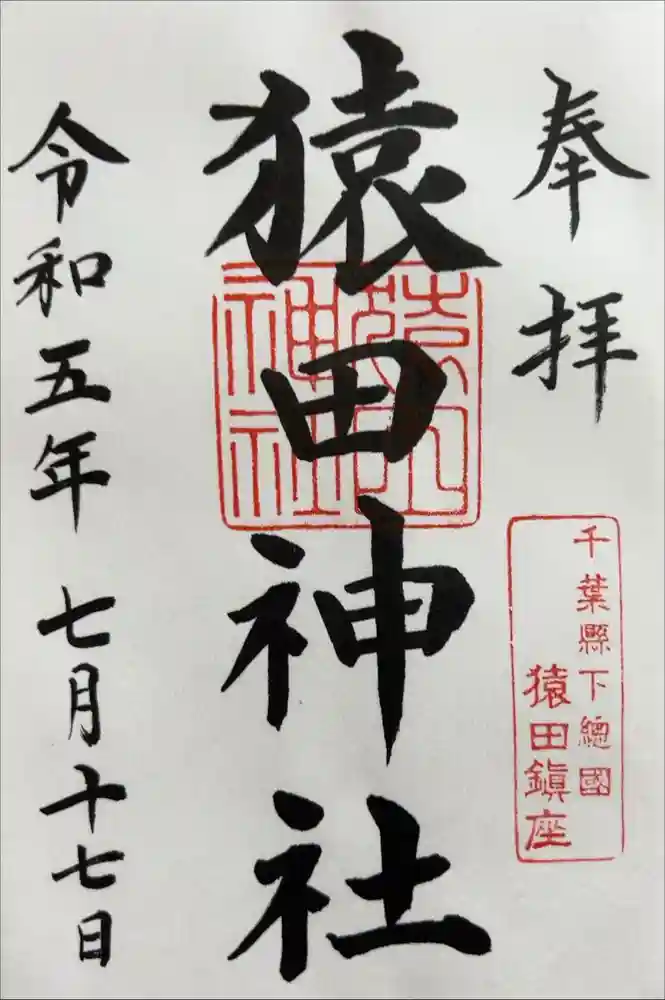 奉拝
千葉縣下總國
猿田鎮座
猿田神社
猿田
神社
令和五年 七月十七日